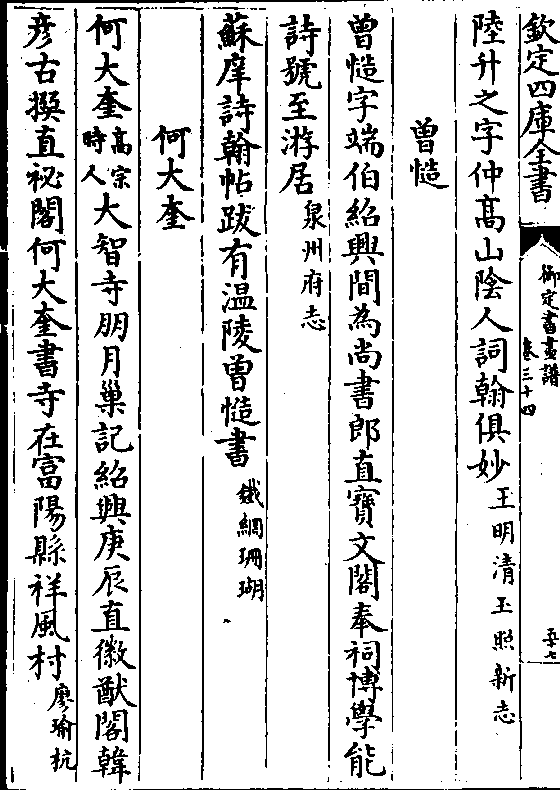 欽定四庫全書
御定書畫譜
卷三十四
五十七
陸升之字仲髙山陰人詞翰俱妙王明清玉照新志
曾慥
曾慥字端伯紹興間為尚書郎直寳文閣奉祠博學能
詩號至游居泉州府志
蘇庠詩翰帖跋有温陵曾慥書鐵網珊瑚
何大奎
何大奎髙宗時人大智寺朋月巢記紹興庚辰直徽猷閣韓
彦古撰直祕閣何大奎書寺在富陽縣祥風村廖瑜杭